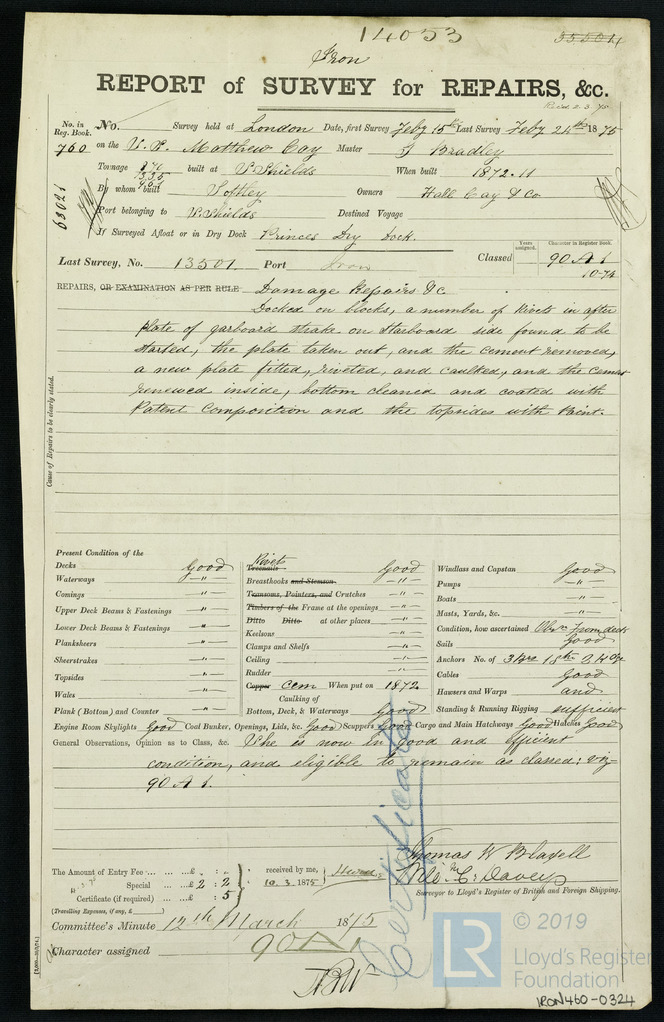 14053
35504
Iron
REPORT of SURVEY for REPAIRS, &c.
No. in Reg. Book. No. Survey held at London Date, first Survey Feby 15th Last Survey Feby 24th 1875
760 on the S.S. Matthew Cay Master J Bradley
Tonnage built at S. Shields When built 1872.11
63021
By whom built Softley Owners Hall Cay & Co
Port belonging to N. Shields Destined Voyage
If Surveyed Afloat or in Dry Dock Princes Dry Dock.
Last Survey, No. 13501 Port Iron Classed Years assigned. Character in Register Book. 90 A 1
10.74
REPAIRS, OR EXAMINATION AS PER RULE Damage Repairs &c
Docked on blocks, a number of Rivets in after
plate of garboard strake on Starboard side found to be
started, the plate taken out, and the cement removed,
a new plate fitted, riveted, and caulked, and the cement
renewed inside, bottom cleaned and coated with
Patent Composition and the topsides with Paint.
Cause of Repairs to be clearly stated.
Present Condition of the
Decks Good
Waterways -"-
Comings -"-
Upper Deck Beams & Fastenings -"-
Lower Deck Beams & Fastenings -"-
Planksheers -"-
Sheerstrakes -"-
Topsides -"-
Wales -"-
Plank (Bottom) and Counter -"-
Rivets
Treenails Good
Breasthooks and Stemson -"-
Transoms, Pointers, and Crutches -"-
Timbers of the Frame at the openings -"-
Ditto Ditto at other places -"-
Keelsons -"-
Clamps and Shelfs -"-
Ceiling -"-
Rudder -"-
Copper Cem When put on 1872
Caulking of
Bottom, Deck, & Waterways Good
Windlass and Capstan Good
Pumps -"-
Boats -"-
Masts, Yards, &c. -"-
Condition, how ascertained Obsn from deck
Sails Good
Anchors No. of 3 Brs 1 St 2 Kdg
Cables Good
Hawsers and Warps and
Standing & Running Rigging sufficient
Engine Room Skylights Good Coal Bunker, Openings, Lids, &c. Good Scuppers Good Cargo and Main Hatchways Good Hatches Good
General Observations, Opinion as to Class, &c. She is now in good and efficient
condition, and eligible to remain as classed: viz-
90 A 1.
Certificate
The Amount of Entry Fee ...£ : :
Special ...£ 2 : 2
Certificate (if required) ... : 5
(Travelling Expenses, if any, £ )
received by me,
10.3.1875
Thomas W Blayell
Wm C. Davey
Surveyor to Lloyd's Register of British and Foreign Shipping.
Committee's Minute 12th March 1875
Character assigned 90 A 1
© 2019
LR
Lloyd's Register
Foundation
IRON460-0324